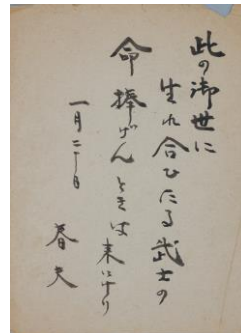 此の御世に
生れ合ひたる武士の
命捧げんときは来にけり
一月二十日
春夫